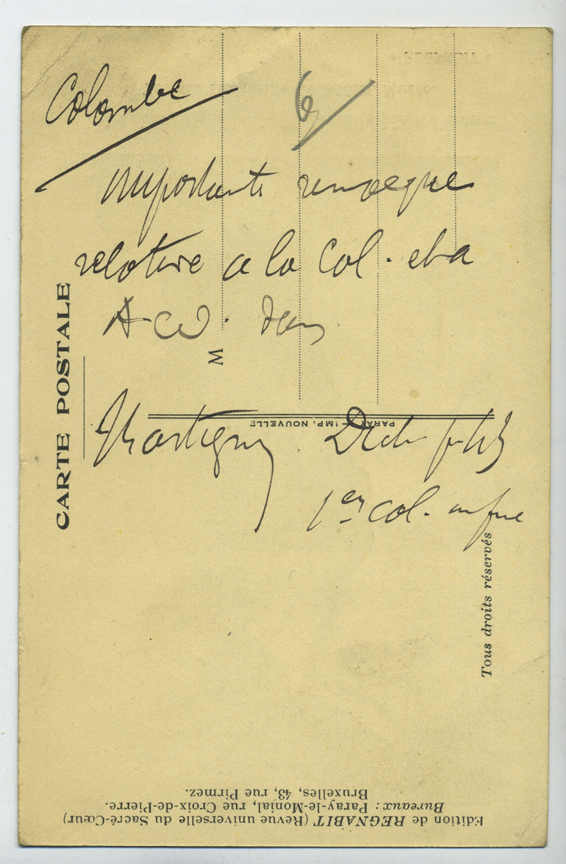 Colombe
6
Importante remarque
relative a la Col. et a
A
M
CARTE POSTALE
PARAY-IMP. NOUVELLE
Martigny
1er col. en fine
Tous droits réservés
Edition de REGNABIT (Revue universelle du Sacré-Cœur)
Bureaux : Paray-le-Monial, rue Croix-de-Pierre.
Bruxelles, 43, rue Pirmez.